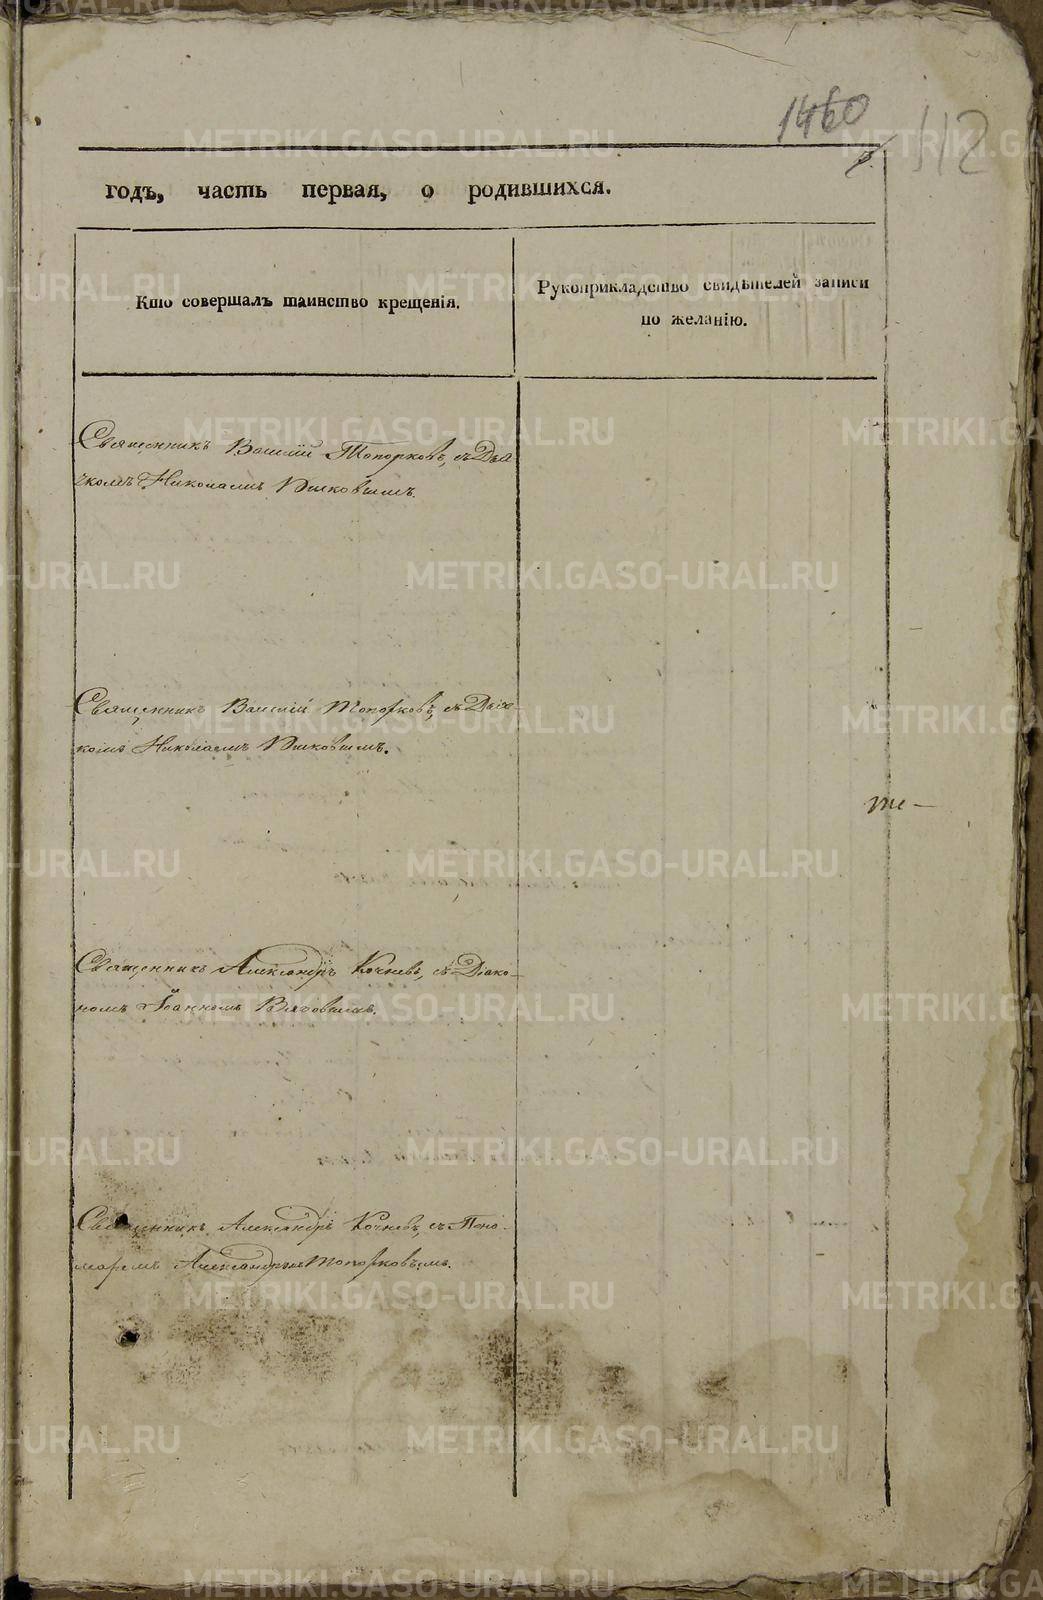 1460
112
годъ, часть первая, о родившихся.
Кто совершалъ таинство крещенія.
Рукоприкладство свидѣтелей записи
по желанію.
Священникъ Василій Топорковъ, съ Дья
чкомъ Николаемъ
Священникъ Василій Топорковъ, съ Діа
кономъ Николаемъ
те-
Священникъ Александръ Кочневъ, съ Діако-
номъ Іоанномъ
Священникъ Александръ Кочневъ, съ Поно-
маремъ Александромъ Топорковымъ.
METRIKI.GASO-URAL.RU